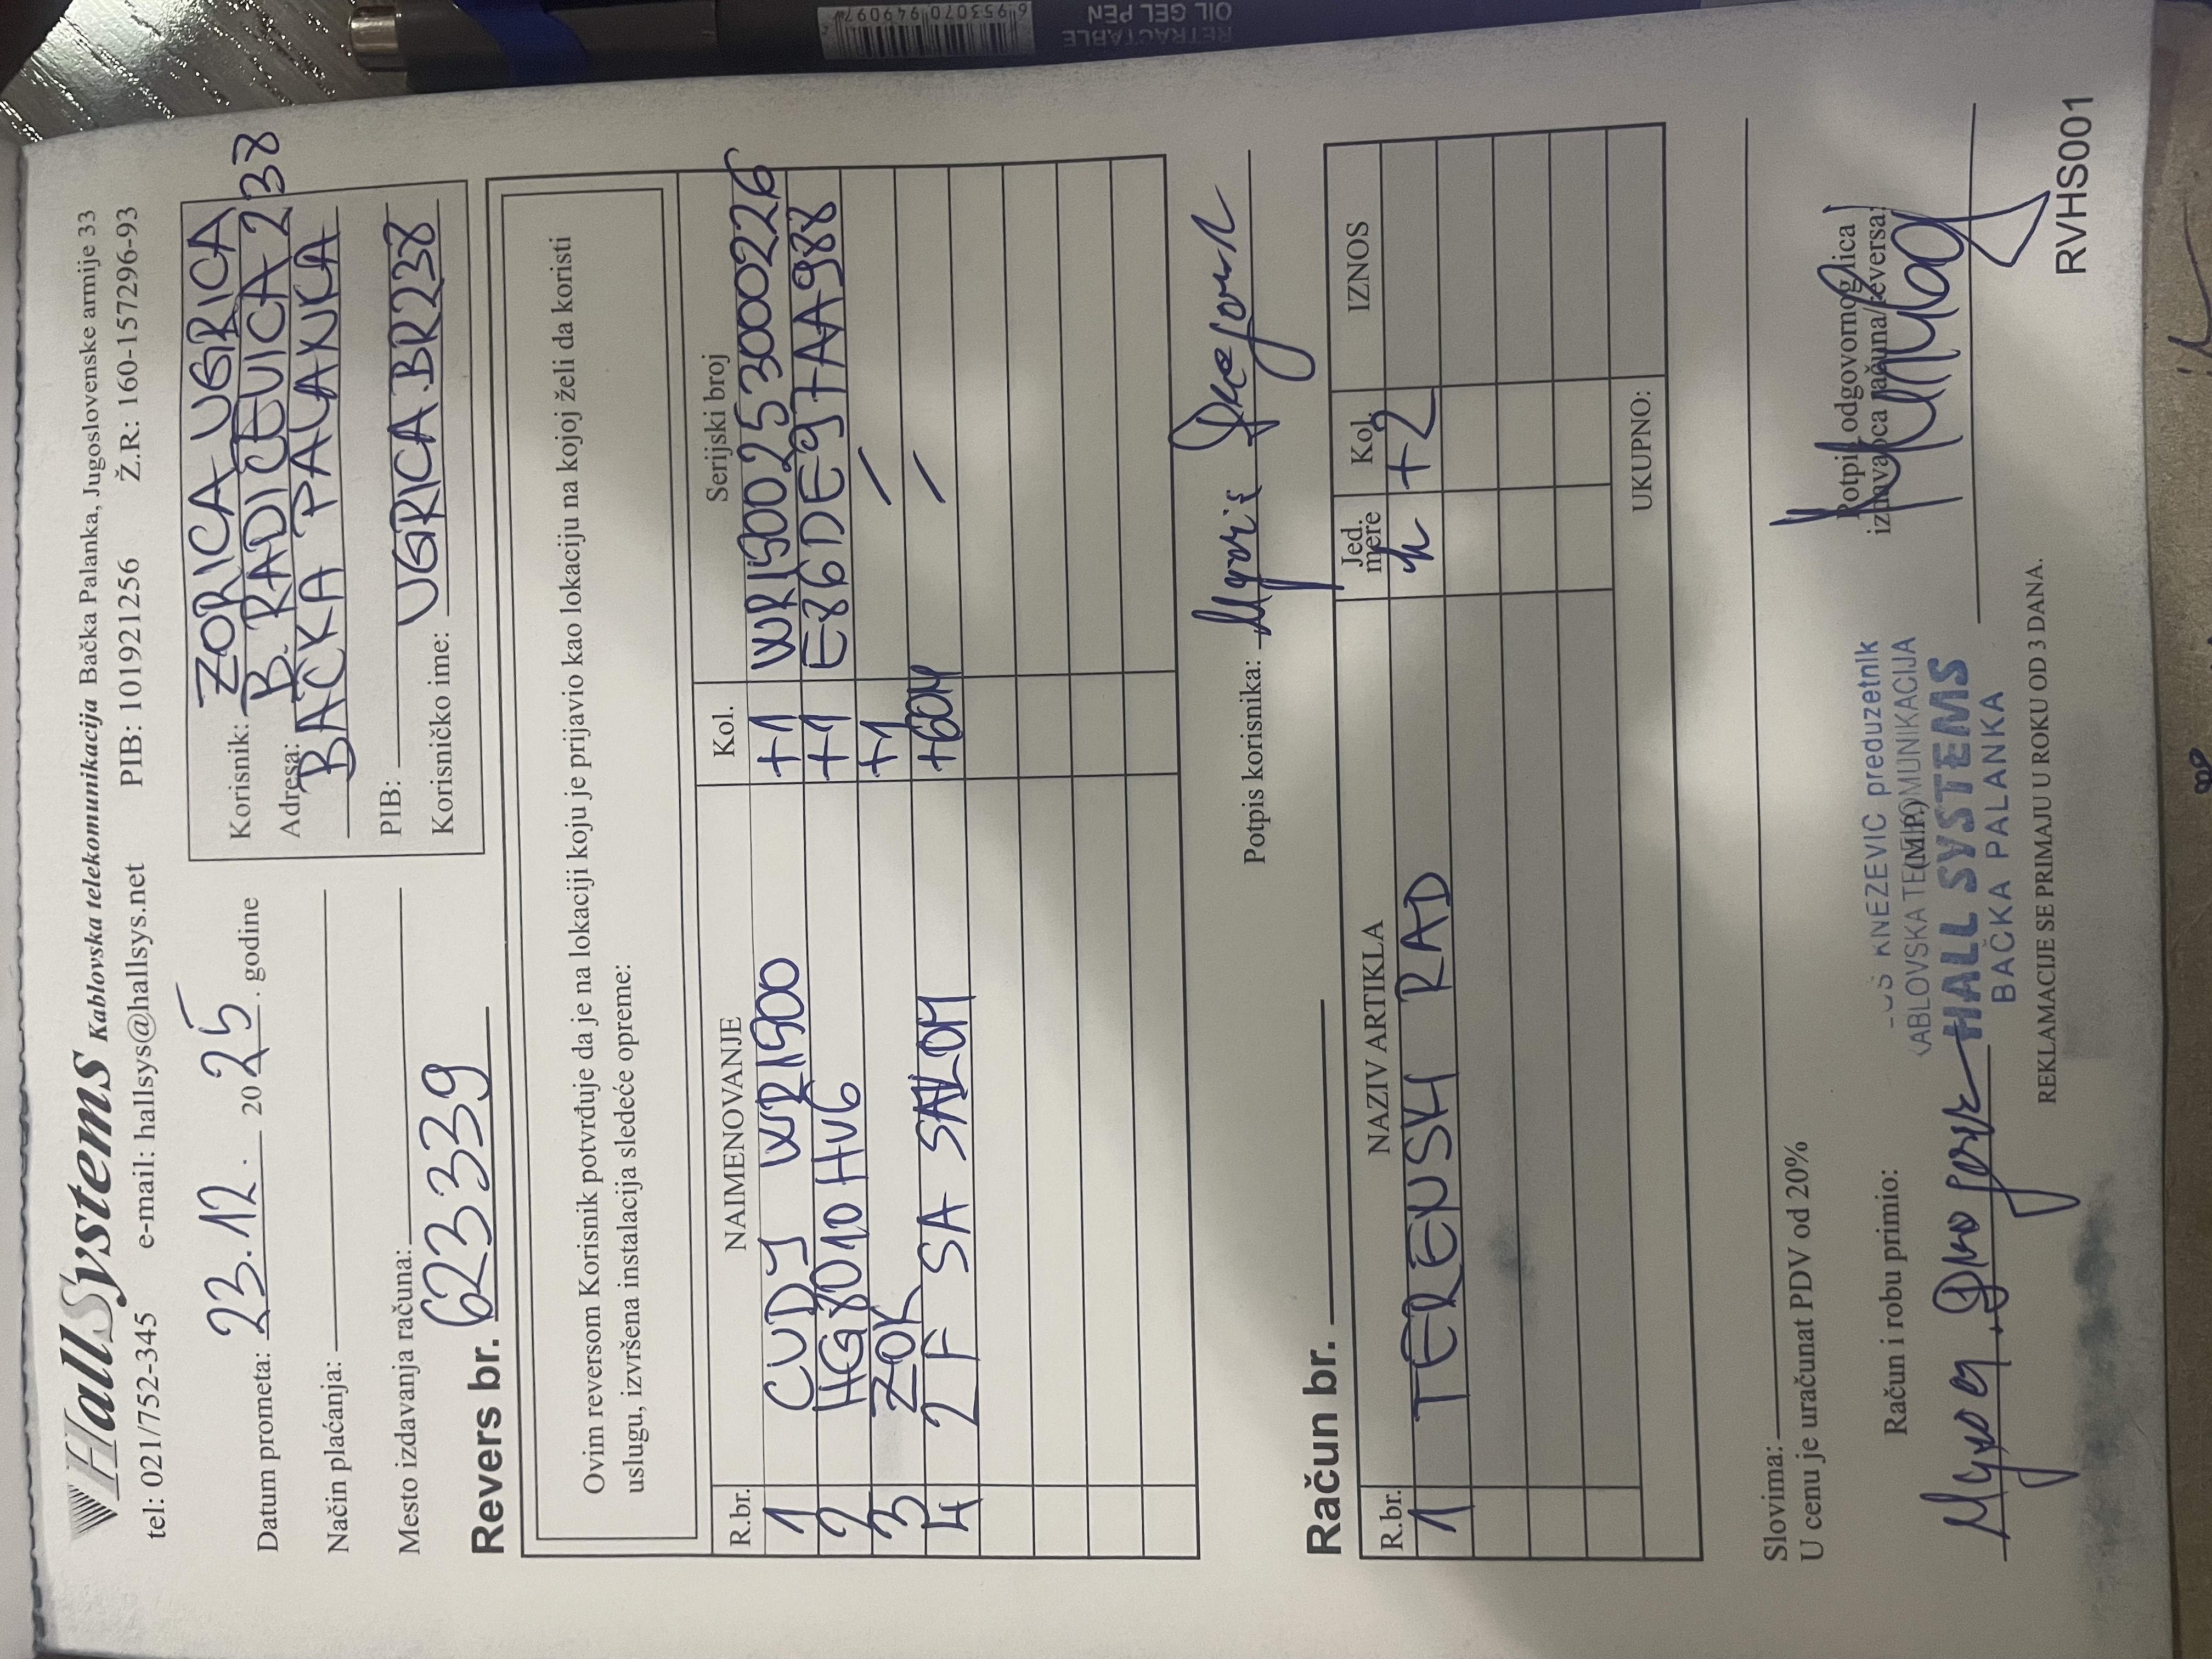 HallSystems Kablovska telekomunikacija Bačka Palanka, Jugoslovenske armije 33
tel: 021/752-345 e-mail: hallsys@hallsys.net PIB: 101921256 Ž.R: 160-157296-93
Datum prometa: 23.12. 2025. godine
Način plaćanja:
Mesto izdavanja računa:
Korisnik: ZORICA UGRICA
Adresa: B. RADIČEVIĆA 238
BAČKA PALANKA
PIB:
Korisničko ime: UGRICA.BR238
Revers br. 623339
Ovim reversom Korisnik potvrđuje da je na lokaciji koju je prijavio kao lokaciju na kojoj želi da koristi
uslugu, izvršena instalacija sledeće opreme:
R.br. NAIMENOVANJE Kol. Serijski broj
1 CUDY WR1500 +1 WR15002530002​26
2 HG8010HV6 +1 E86DE97AA988
3 ZOK +1 /
4 2F SA SAJLOM +60M /
Potpis korisnika:
Račun br.
R.br. NAZIV ARTIKLA Jed. mere Kol. IZNOS
1 TERENSKI RAD h +2
UKUPNO:
Slovima:
U cenu je uračunat PDV od 20%
Račun i robu primio:
(M.P.)
KNEZEVIC preduzetnik
KABLOVSKA TELEKOMUNIKACIJA
HALL SYSTEMS
BAČKA PALANKA
Potpis odgovornog lica
izdavaoca računa/reversa:
REKLAMACIJE SE PRIMAJU U ROKU OD 3 DANA.
RVHS001
RETRACTABLE
OIL GEL PEN
6 953070 949097